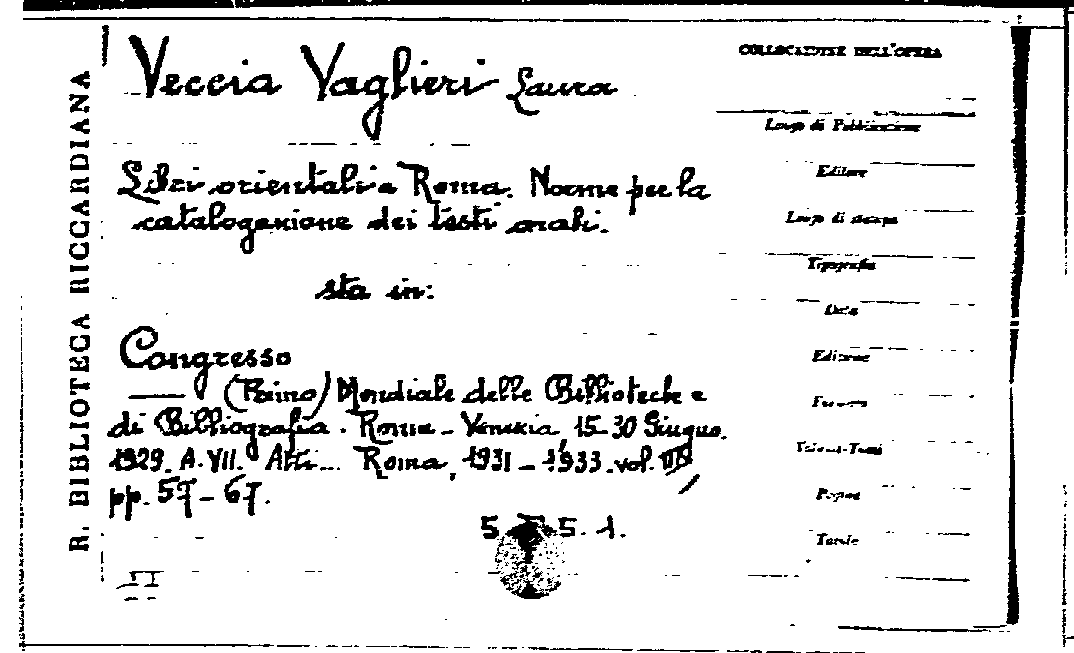 R. BIBLIOTECA RICCARDIANA
Veccia Vaglieri Laura
Libri orientali a Roma. Norme per la
catalogazione dei testi arabi.
sta in:
Congresso
—— (Primo) Mondiale delle Biblioteche e
di Bibliografia. Roma - Venezia, 15-30 Giugno
1929. A. VII. Atti... Roma, 1931-1933. vol.
pp. 57-67.
COLLOCAZIONE DELL'OPERA
Luogo di Pubblicazione
Editore
Luogo di stampa
Tipografia
Data
Edizione
Formato
Volumi-Tomi
Pagine
Tavole